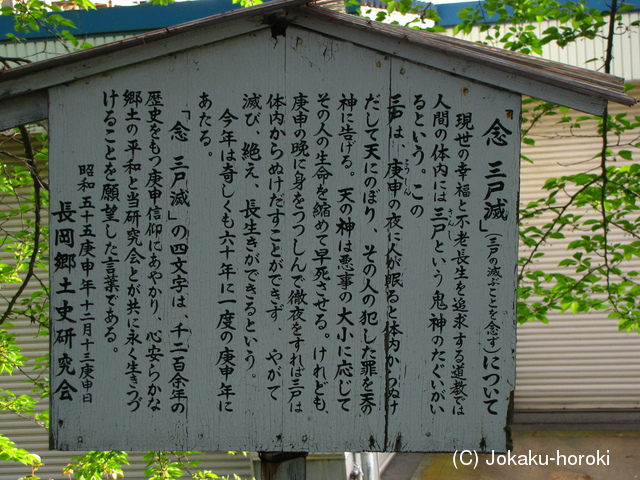 「念 三戸滅」(三戸の滅ぶことを念ず)について
現世の幸福と不老長生を追求する道教では
人間の体内には三戸という鬼神のたぐいがい
さん
るという。この
三戸は、庚申の夜に人が眠ると体内からぬけ
こうしん
だして天にのぼり、その人の犯した罪を天の
神に告げる。天の神は悪事の大小に応じて
その人の生命を縮めて早死させる。けれども、
庚申の晩に身をつつしんで徹夜をすれば三戸は
体内からぬけだすことができず、やがて
滅び、絶え、長生きができるという。
今年は奇しくも六十年に一度の庚申年に
あたる。
「念 三戸滅」の四文字は、千二百余年の
歴史をもつ庚申信仰にあやかり、心安らかな
郷土の平和と当研究会とが共に永く生きつづ
けることを願望した言葉である。
昭和五十五庚申年十二月十三庚申日
長岡郷土史研究会
(C) Jokaku-horoki